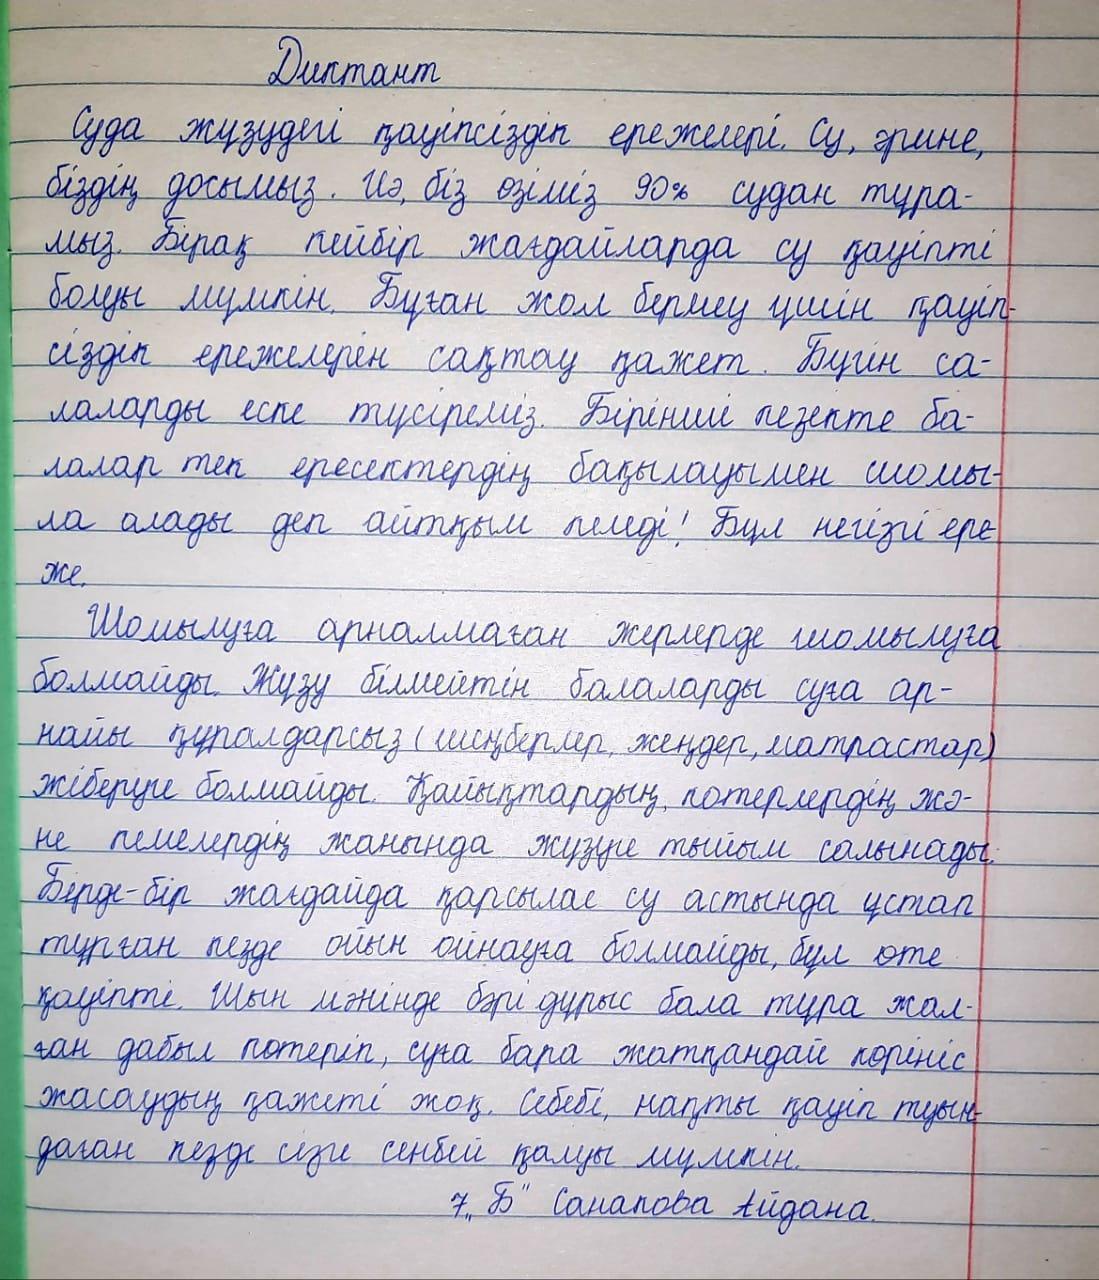 Диктант
Суда жүзудегі қауіпсіздік ережелері. Су, әрине,
біздің досымыз. Иә, біз өзіміз 90% судан тұра-
мыз. Бірақ кейбір жағдайларда су қауіпті
болуы мүмкін. Бұған жол бермеу үшін қауіп-
сіздік ережелерін сақтау қажет. Бүгін са-
лаларды еске түсіреміз. Бірінші кезекте ба-
лалар тек ересектердің бақылауымен шомы-
ла алады деп айтқым келеді! Бұл негізгі ере
же.
Шомылуға арналмаған жерлерде шомылуға
болмайды. Жүзу білмейтін балаларды суға ар-
найы құралдарсыз (шеңберлер, жеңдер, матрастар)
жіберуге болмайды. Қайықтардың, котерлердің жә-
не кемелердің жанында жүзуге тыйым салынады.
Бірде-бір жағдайда қарсылас су астында ұстап
тұрған кезде ойын ойнауға болмайды, бұл өте
қауіпті. Шын мәнінде бәрі дұрыс бала тұра жал-
ған дабыл көтеріп, суға бара жатқандай көрініс
жасаудың қажеті жоқ. Себебі, нақты қауіп туын-
даған кезде сізге сенбей қалуы мүмкін.
7 „Б" Санакова Айдана.